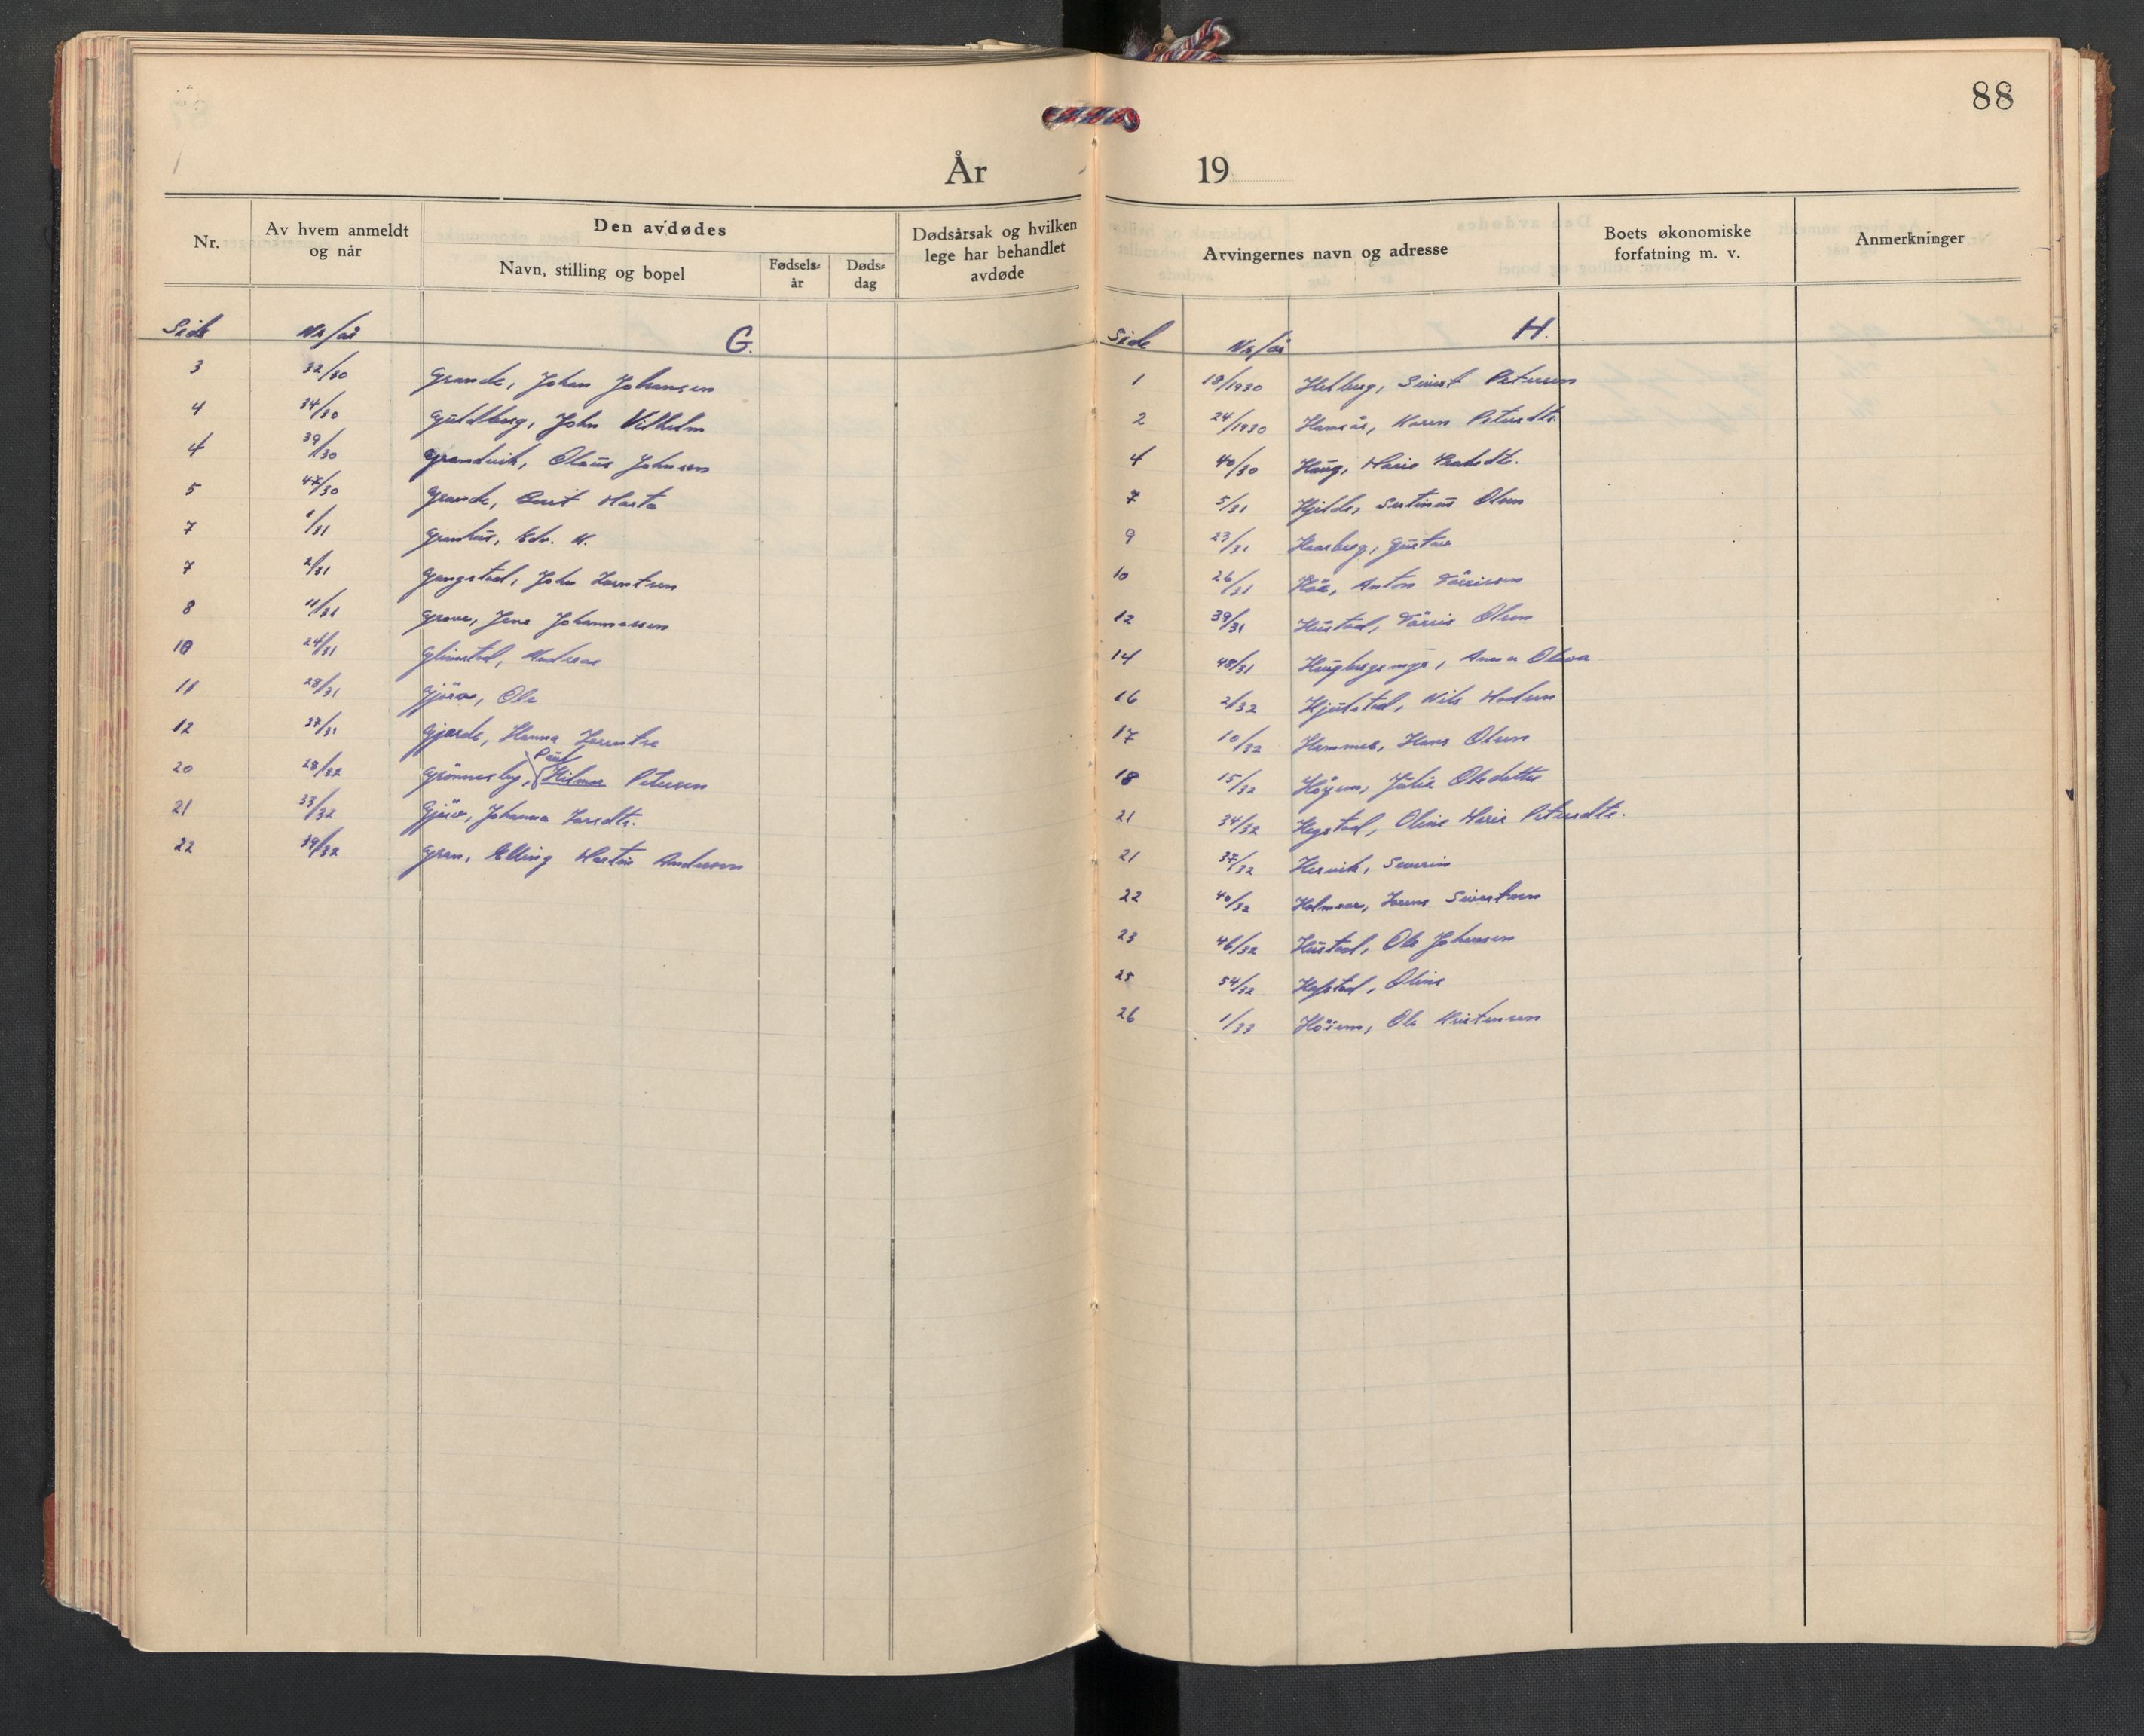 88
År 19
Nr.
Av hvem anmeldt
og når
Den avdødes
Navn, stilling og bopel
Fødsels-
år
Døds-
dag
Dødsårsak og hvilken
lege har behandlet
avdøde
Side Nr/år G.
3 32/30 Grande, Johan Johansen
4 34/30 Guldberg, John Vilhelm
4 39/30 Grandvik, Olaus Johnsen
5 47/30 Grande, Berit Marta
7 1/31 Edv. K.
7 2/31 Gangstad, John Lorntsen
8 11/31 Johannessen
10 24/31 Andreas
11 28/31 Gjörv, Ole
12 37/31 Hanna
Paul
20 28/32 Grönnesby, Hilmar Petersen
21 33/32 Gjörv, Johanna Larsdtr.
22 39/32 Gran, Elling Martin Andersen
Arvingernes navn og adresse
Boets økonomiske
forfatning m. v.
Anmerkninger
Side Nr/år H.
1 18/1930 Sivert Petersen
2 24/1930 Karen Petersdtr.
4 40/30 Haug, Marie
7 5/31 Hjelde, Olsen
9 23/31 Gustav
10 26/31 Anton
12 39/31 Hustad, Olsen
14 48/31 Haugbergsmyr, Anna Oleva
16 2/32 Nils
17 10/32 Hammer, Hans Olsen
18 15/32 Höyem, Julie Olsdatter
21 34/32 Hegstad, Oline Marie Petersdtr.
21 37/32 Hervik, Severin
22 40/32 Sivertsen
23 46/32 Hustad, Ole Johansen
25 54/32 Hafstad, Oline
26 1/33 Höiem, Ole Kristensen